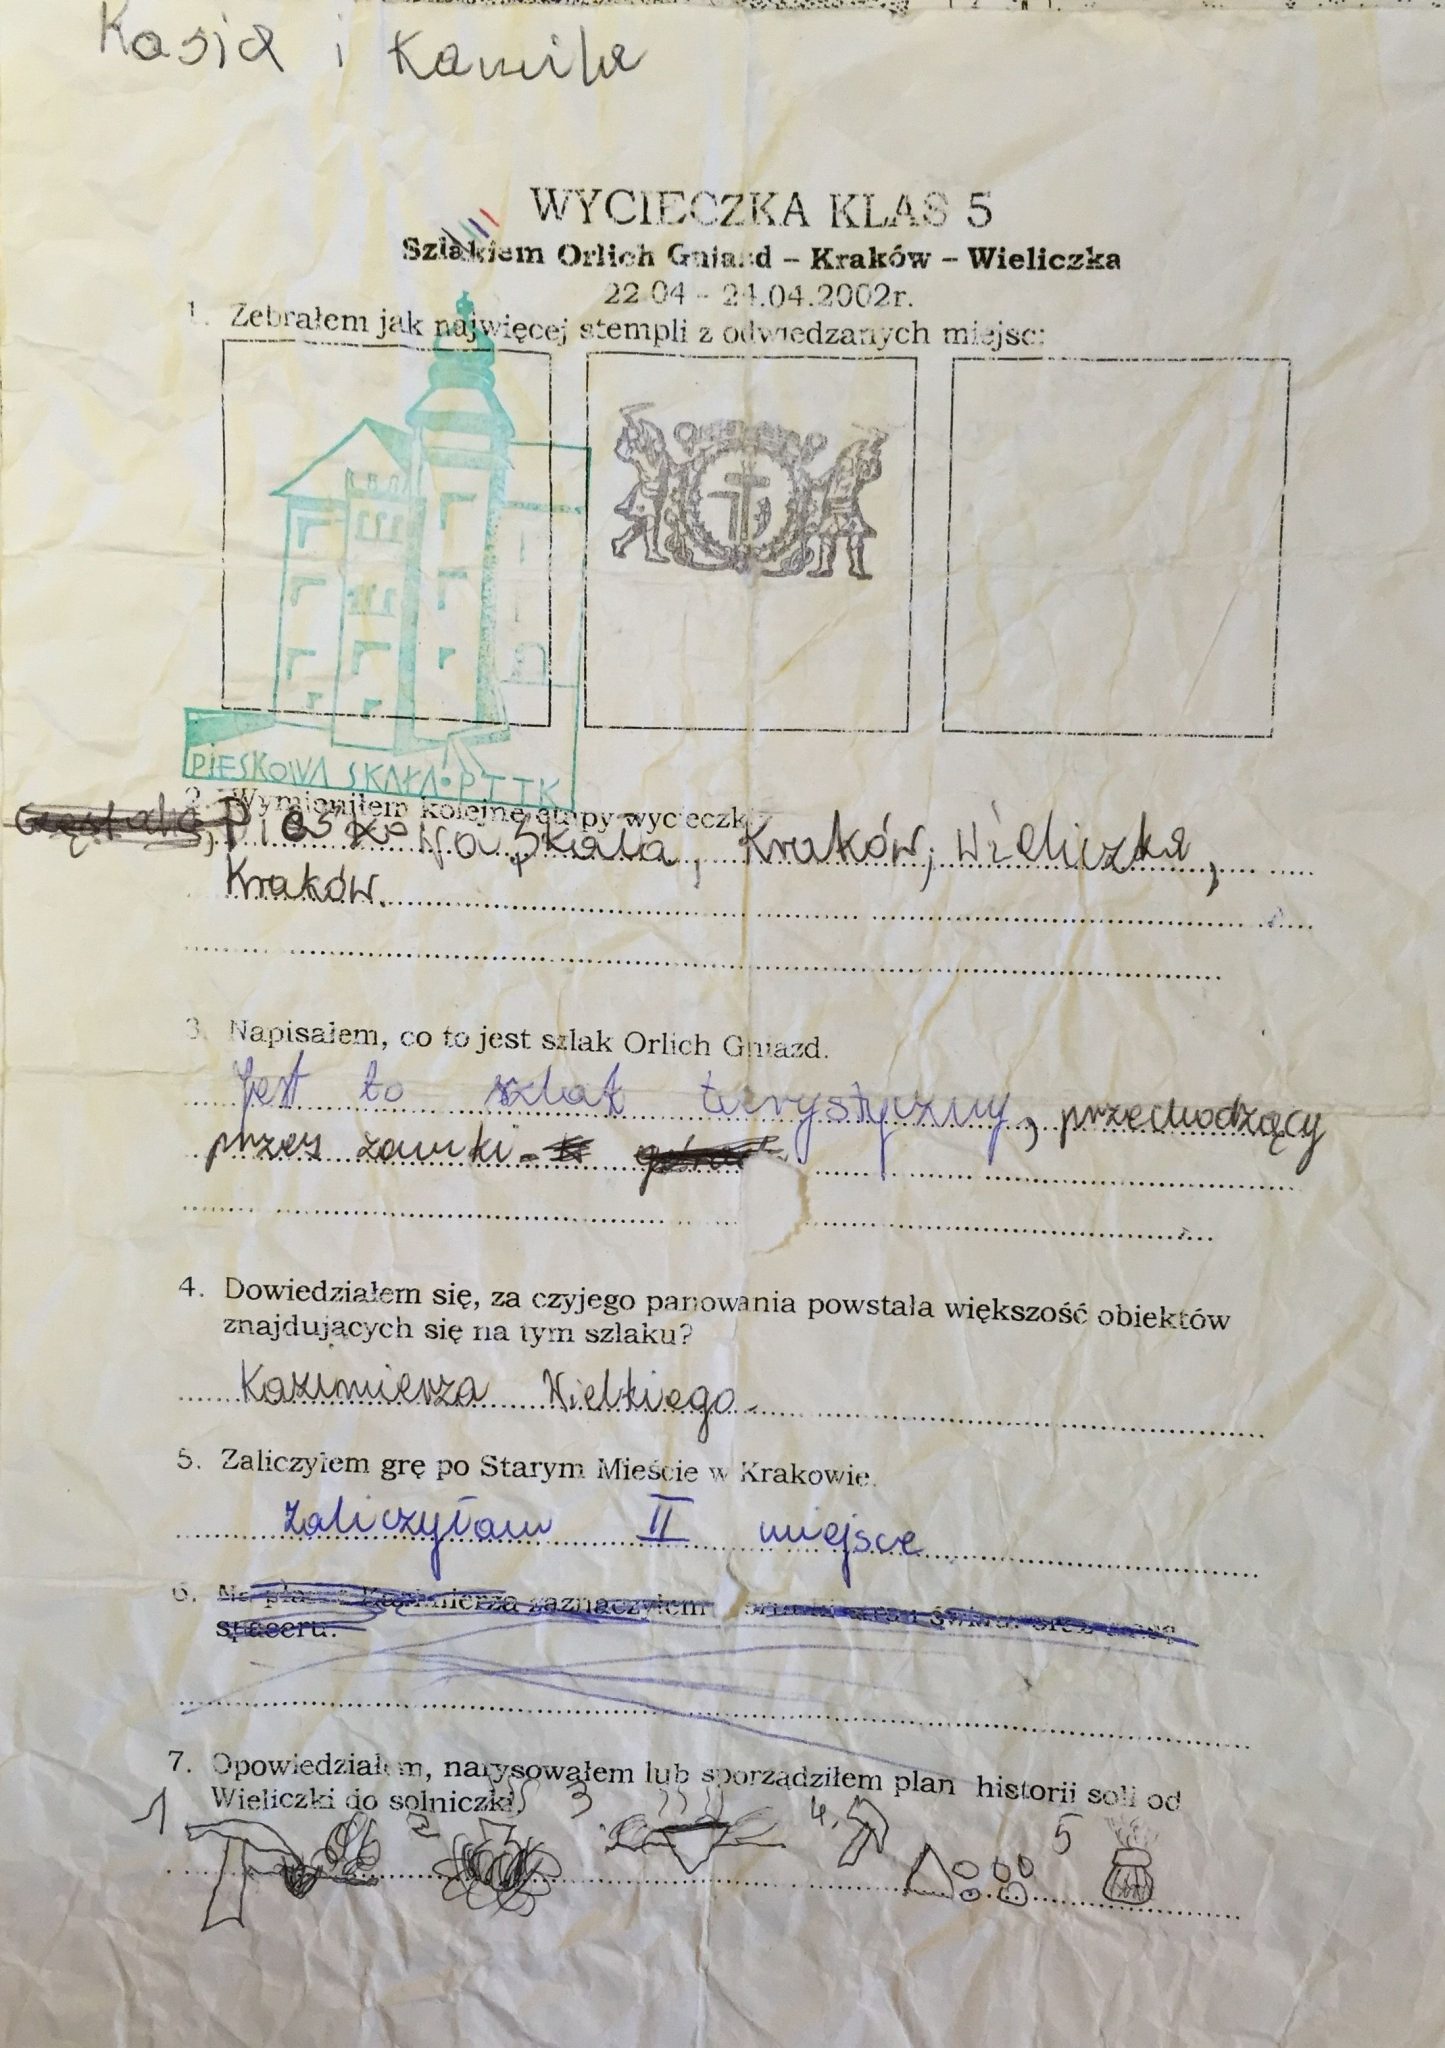 Kasia i Kamila
WYCIECZKA KLAS 5
Szlakiem Orlich Gniazd – Kraków – Wieliczka
22.04 – 24.04.2002r.
1. Zebrałem jak najwięcej stempli z odwiedzanych miejsc:
PIESKOWA SKAŁA • PTTK
2. Wymieniłem kolejne etapy wycieczki
Pieskowa Skała, Kraków, Wieliczka,
Kraków.
3. Napisałem, co to jest szlak Orlich Gniazd.
Jest to szlak turystyczny, przechodzący
przez zamki.
4. Dowiedziałem się, za czyjego panowania powstała większość obiektów
znajdujących się na tym szlaku?
Kazimierza Wielkiego.
5. Zaliczyłem grę po Starym Mieście w Krakowie.
Zaliczyłam II miejsce
6. Na Kazimierza zaznaczyłem
spaceru.
7. Opowiedziałem, narysowałem lub sporządziłem plan historii soli od
Wieliczki do solniczki
1 2 3 4. 5